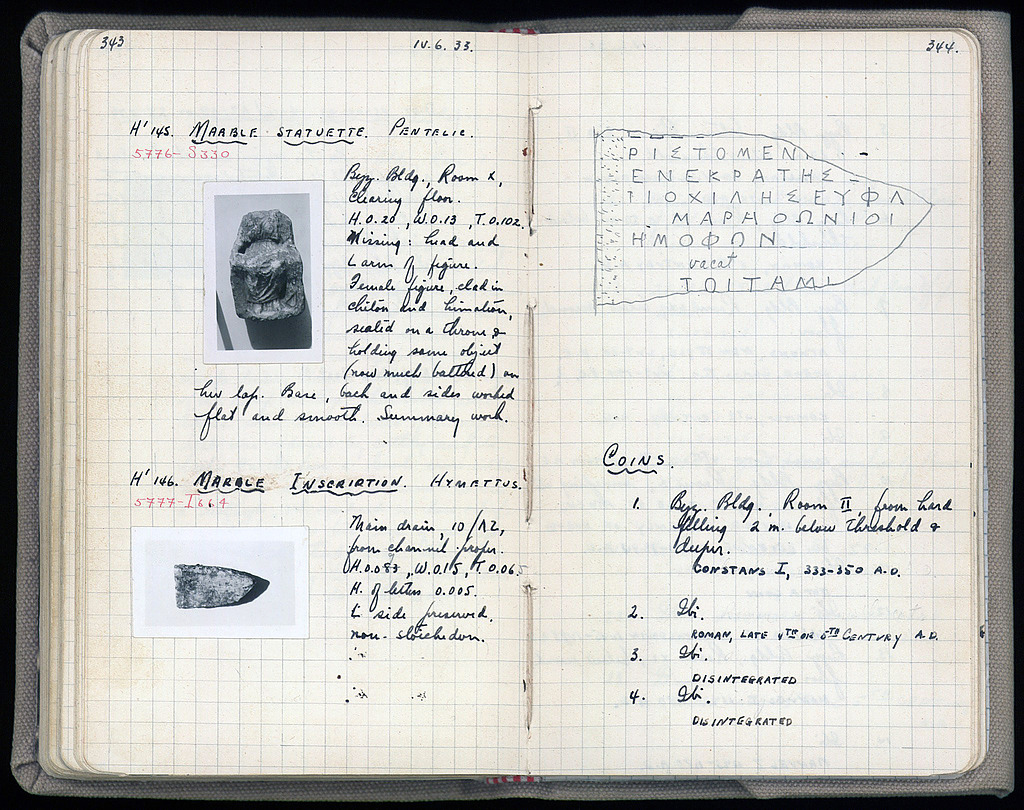 343
IV. 6. 33.
H' 145. MARBLE STATUETTE. PENTELIC.
5776-S330
Byz. Bldg., Room X,
clearing floor.
H. 0.20, W. 0.13, T. 0.102.
Missing: head and
L arm of figure.
Female figure, clad in
chiton and himation,
seated on a throne &
holding some object
(now much battered) on
her lap. Base, back and sides worked
flat and smooth. Summary work.
H' 146. MARBLE INSCRIPTION. HYMETTUS.
5777-I664
Main drain, 10/ΛΖ,
from channel proper.
H. 0.083, W. 0.15, T. 0.065
H. of letters 0.005.
L side preserved.
non-stoichedon.
344.
ΡΙΣΤΟΜΕΝ
ΕΝΕΚΡΑΤΗΣ
ΤΙΟΧΙΛΗΣΕΥΦΛ
ΜΑΡΗΘΩΝΙΟΙ
ΗΜΟΦΩΝ
vacat
ΤΟΙΤΑΜΙ
COINS.
1. Byz. Bldg., Room II, from hard
filling 2 m. below threshold &
deeper.
CONSTANS I, 333-350 A.D.
2. Ibi.
ROMAN, LATE 4TH OR 5TH CENTURY A.D.
3. Ibi.
DISINTEGRATED
4. Ibi.
DISINTEGRATED